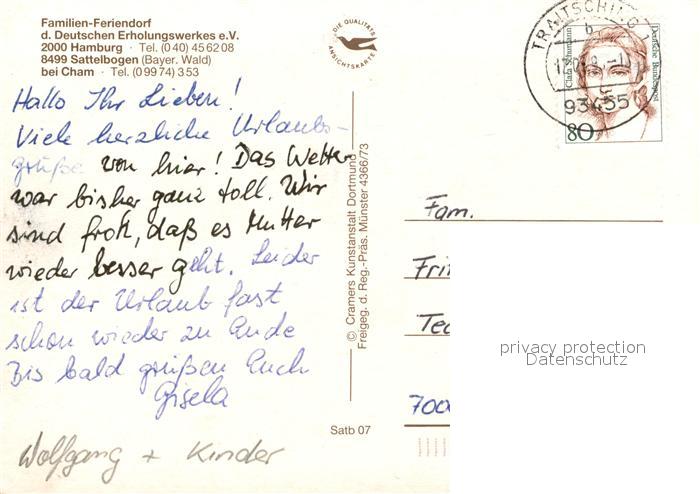 Familien-Feriendorf
d. Deutschen Erholungswerkes e.V.
2000 Hamburg · Tel. (0 40) 45 62 08
8499 Sattelbogen (Bayer. Wald)
bei Cham · Tel. (0 99 74) 3 53
DIE QUALITÄTS
ANSICHTSKARTE
TRAITSCHING
b
93455
Clara Schumann
Deutsche Bundespost
80
Hallo Ihr Lieben!
Viele herzliche Urlaubs-
grüße von hier! Das Wetter
war bisher ganz toll. Wir
sind froh, daß es Mutter
wieder besser geht. Leider
ist der Urlaub fast
schon wieder zu Ende
Bis bald grüßen Euch
Gisela
Wolfgang + Kinder
© Cramers Kunstanstalt Dortmund
Freigeg. d. Reg.-Präs. Münster 4366/73
Satb 07
Fam.
Fri
Tec
700
privacy protection
Datenschutz